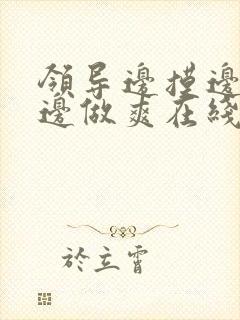 領导邊摸邊
邊做爽在綫
於立霄